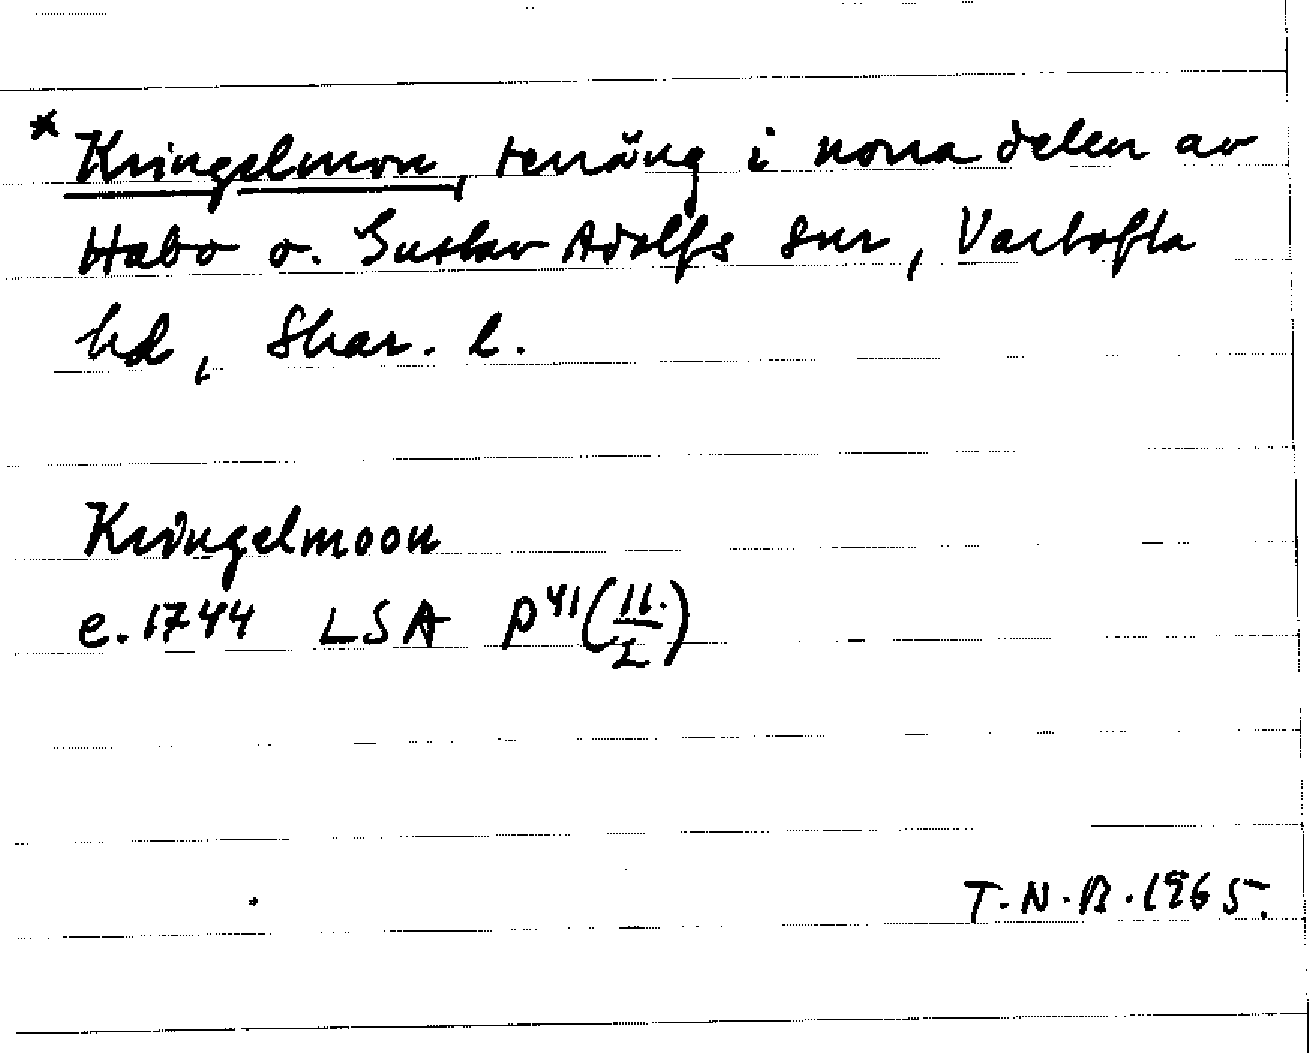 * Kringelmon, terräng i norra delen av
Habo o. Gustav Adolfs snr, Vartofta
hd, Skar. l.
Kringelmoon
e. 1744 LSA P41(11./2)
T.N.B. 1965.